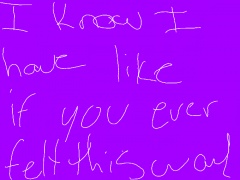 I know I
have like
if you ever
felt this way